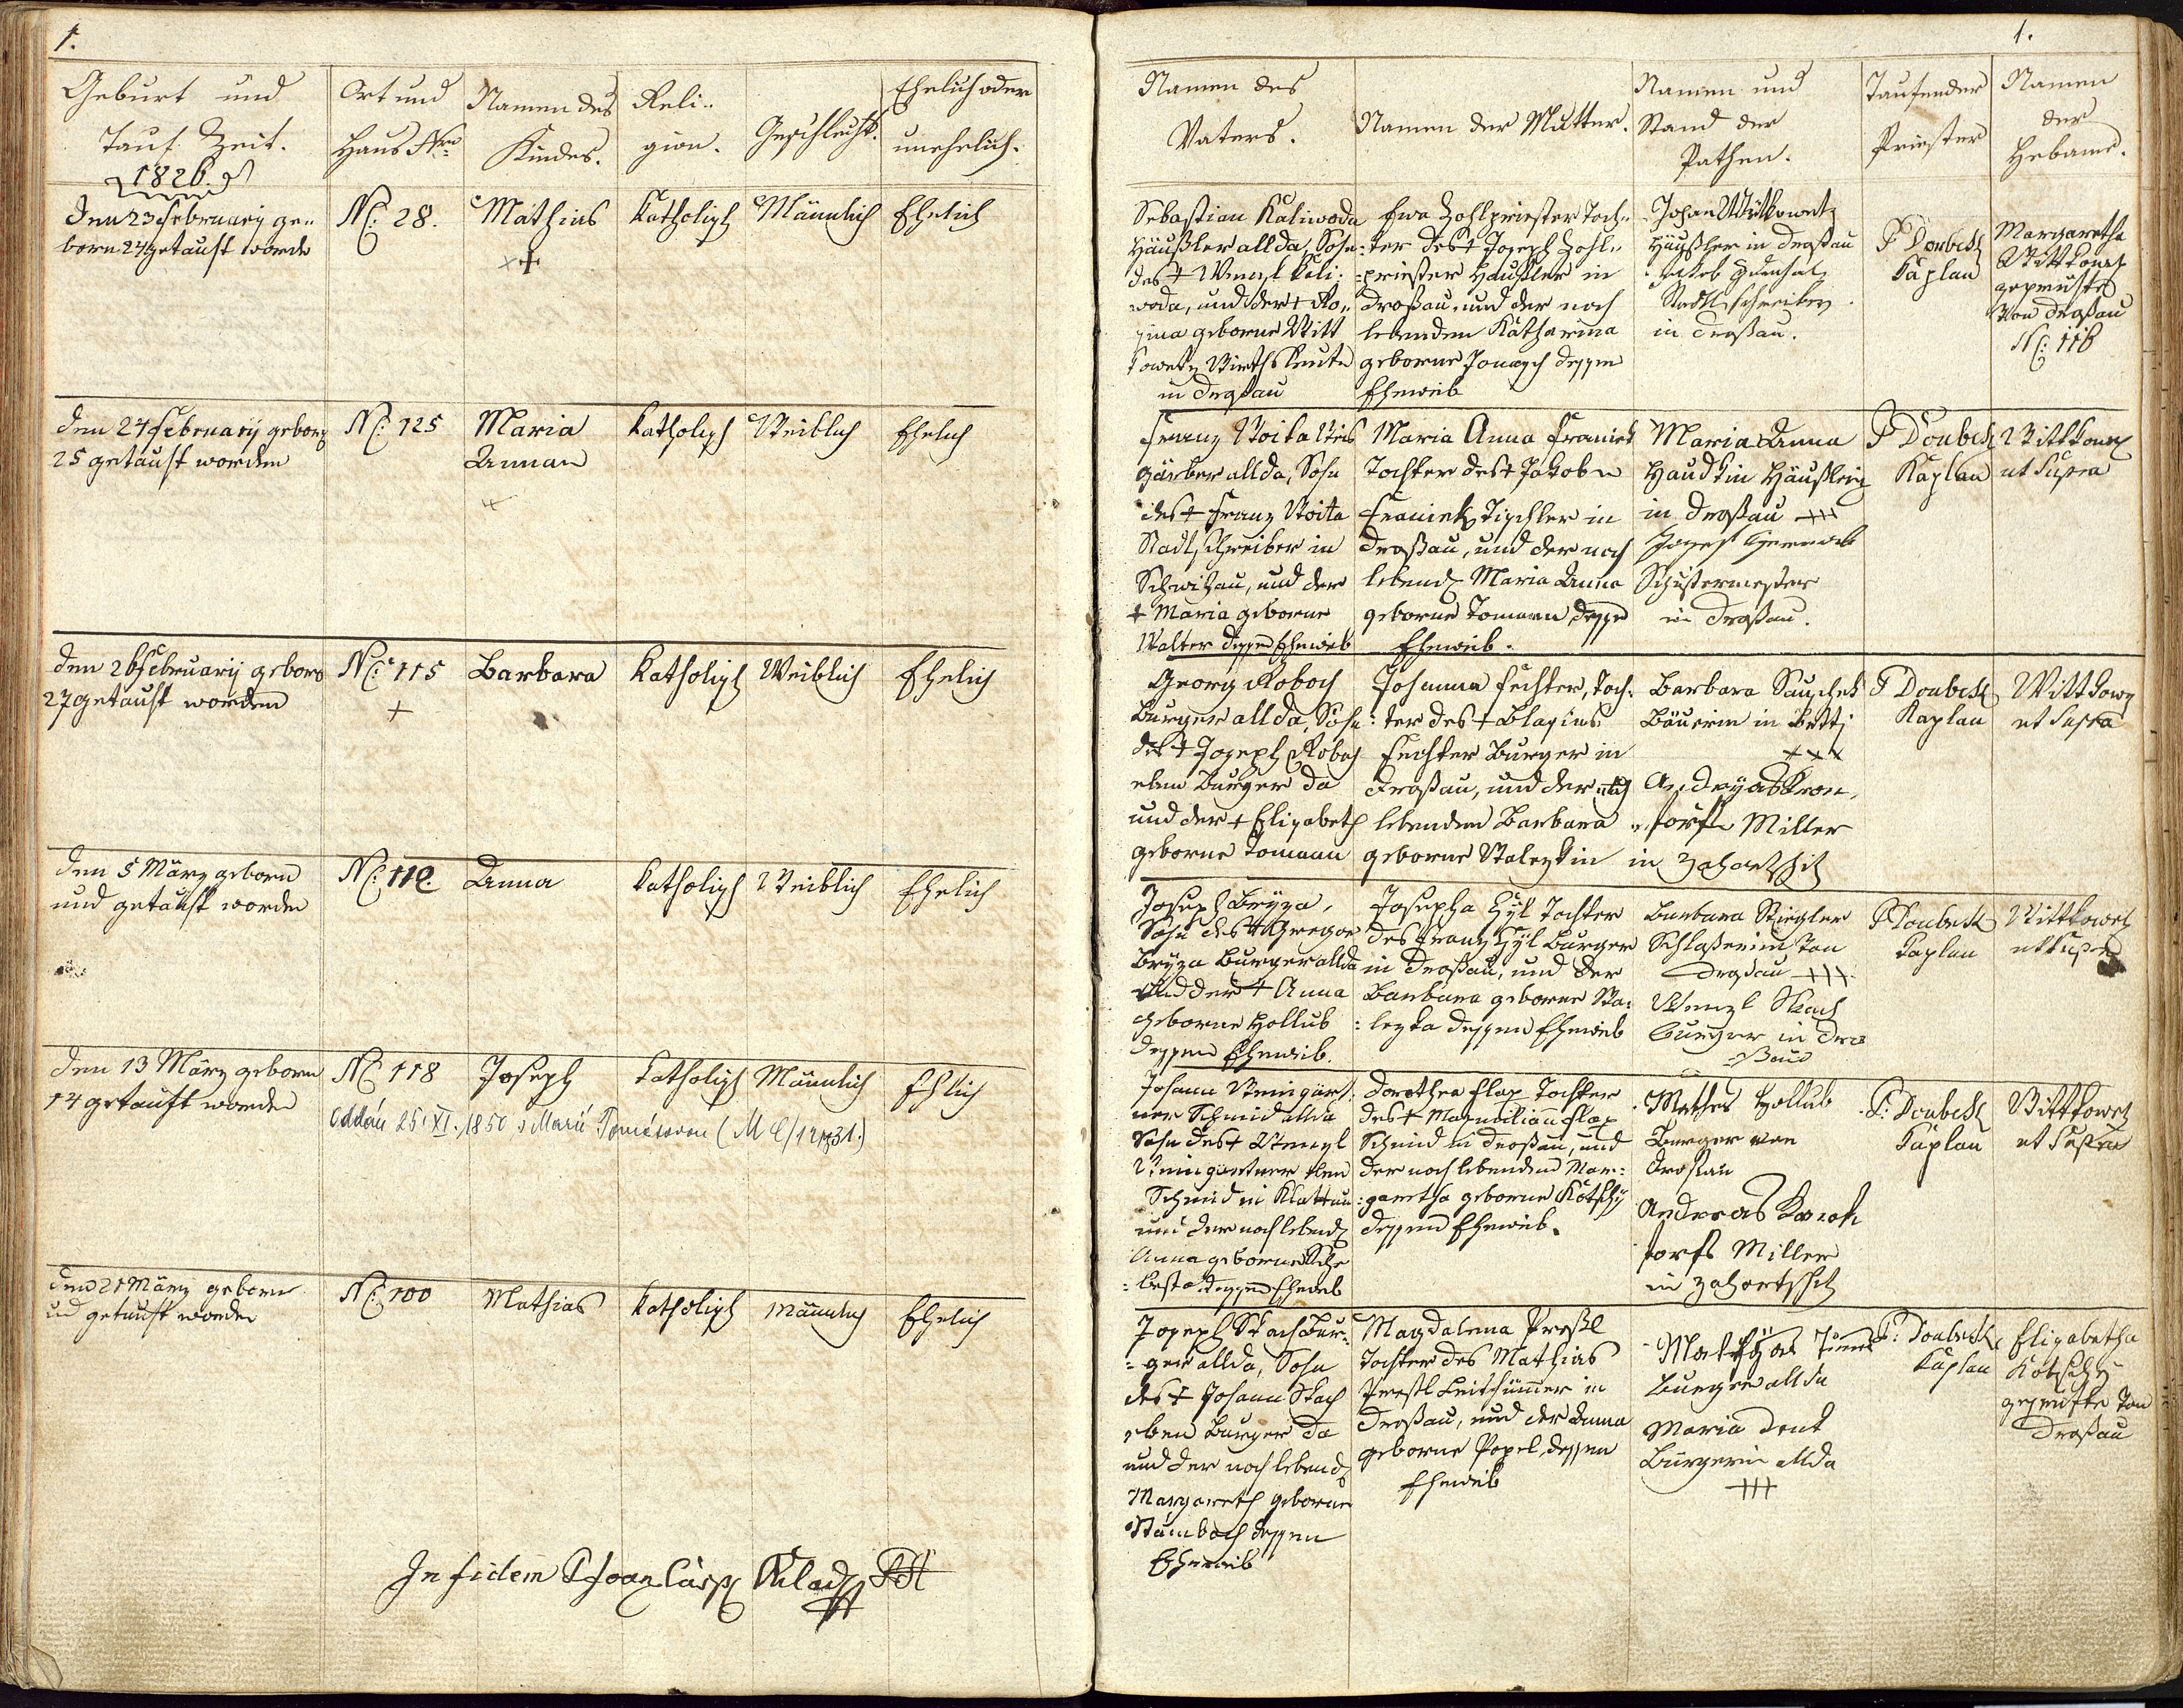 1.
Geburt und
Tauf Zeit.
1826.
Ort und
Haus Nro
Namen des
Kindes.
Reli..
gion.
Geschlecht.
Ehelich oder
unehelich.
den 23 February ge..
born 24 getauft worde
N: 28.
Mathias
Katholisch
Männlich
Ehelich
den 24 February geborn
25 getauft worden
N: 125
Maria
Annan
Katholisch
Weiblich
Ehelich
den 26 February geborn
27 getauft worden
N: 115
Barbara
Katholisch
Weiblich
Ehelich
den 5 März geborn
und getauft worden
N:
Anna
Katholisch
Weiblich
Ehelich
den 13 März geborn
14 getauft worden
N: 118
Joseph
Katholisch
Männlich
Ehlich
Oddán 25. XI. 1850 s Marií
den 21 März geborn
und getauft worden
N: 100
Mathias
Katholisch
Männlich
Ehelich
In fidem
1.
Namen des
Vaters.
Namen der Mutter.
Namen und
Stand der
Pathen.
Taufender
Priester
Namen
der
Hebame.
Sebastian Kaliwoda
Häußler allda, Sohn
des + Wenzl Kali-
woda, und der + Ro..
sina geborne Witt
kowetz Wirthsleute
in Droßau
Ewa Zohlpriester Toch..
ter des + Joseph Zohl..
priester Häußler in
Droßau, und der noch
lebenden Katharina
geborne dessen
Eheweib
Johan Wittkowetz
Häußler in Droßau
Jakob
Stadtschreiber
in Droßau.
P Doubek
Kaplan
Margaretha
Wittkowetz
geprüfte
Von Droßau
N: 116
Franz Woita Weis
gärber allda, Sohn
des + Franz Woita
Stadtschreiber in
Schwihau, und der
+ Maria geborne
Walter dessen Eheweib
Maria Anna Franiek
Tochter des + Jakob
Franiek Tischler in
Droßau, und der noch
lebend Maria Anna
geborne Tomann dessen
Eheweib.
Maria Anna
Häußlerin
in Droßau +++
Josef
Schustermeister
in Droßau.
P Doubek
Kaplan
Wittkowetz
ut Supra
Georg Roboch
Burger allda, Sohn
des + Joseph Roboch
eben Burger da
und der + Elisabeth
geborne Tomann
Johanna Fechter, Toch:
ter des + Blasius
Fechter Burger in
Droßau, und der noch
lebenden Barbara
geborne
Barbara
Bäuerin in
+++
Miller
in
P Doubek
Kaplan
Wittkowetz
ut Supra
Joseph Bryza,
Sohn des + Gregor
Bryza Burger allda
und der + Anna
geborne Hollub
dessen Eheweib.
Josepha Hyl Tochter
des Franz Hyl Burger
in Droßau, und der
Barbara geborne Wa:
lezka dessen Eheweib
Barbara
Von
Droßau +++
Wenzl Stach
Burger in Dro
ßau
P Doubek
Kaplan
Wittkowetz
ut Supra
Johann Weingärt:
ner Schmid allda
Sohn des + Wenzl
Weingartner eben
Schmid in Klattau
und der noch lebend
Anna geborne
dessen Eheweib
Dorothea Flax Tochter
des + Maxmilian Flax
Schmid in Droßau, und
der noch lebenden Mar:
garetha geborne Kotschy
dessen Eheweib.
Mathes Hollub
Burger von
Droßau
Andreas
Dorfs Miller
in
P: Doubek
Kaplan
Wittkowetz
ut Supra
Joseph Stach Bur:
ger allda, Sohn
des + Johann Stach
eben Burger da
und der noch lebend
Margareth geborne
dessen
Eheweib
Magdalena Preßl
Tochter des Mathias
Preßl in
Droßau, und der Anna
geborne Popel, dessen
Eheweib
Burger allda
Maria
Burgerin allda
+++
P: Doubek
Kaplan
Elisabetha
Kotschy
geprüfte Von
Droßau